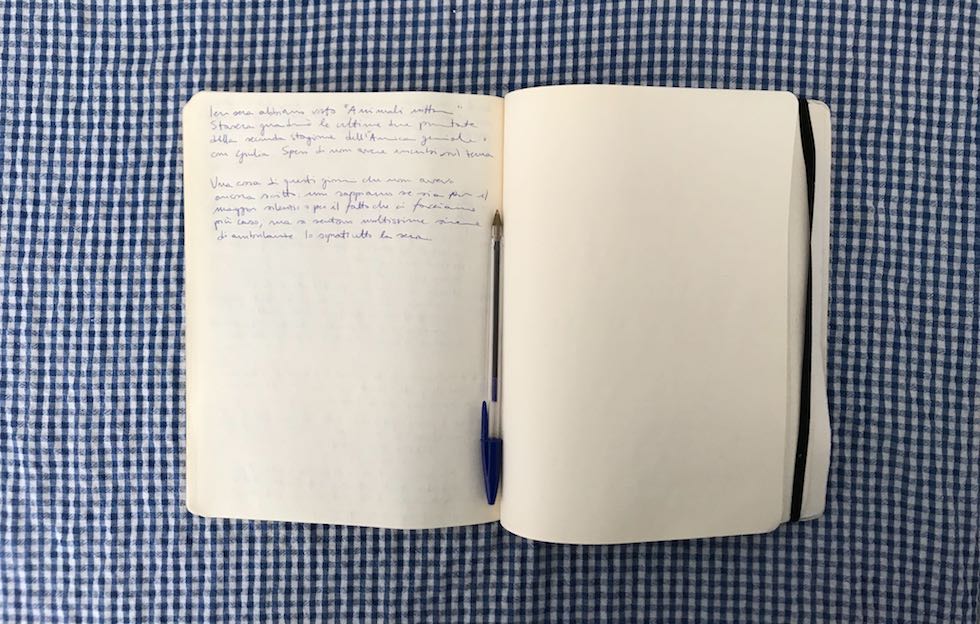 Ieri sera abbiamo visto "Animali notturni"
Stasera guardiamo le ultime due puntate
della seconda stagione dell'Amica geniale
con Giulia. Spero di non avere incubi sul tema
Una cosa di questi giorni che non avevo
ancora scritto: non sappiamo se sia per il
maggior silenzio o per il fatto che ci facciamo
più caso, ma si sentono moltissime sirene
di ambulanze, soprattutto la sera.